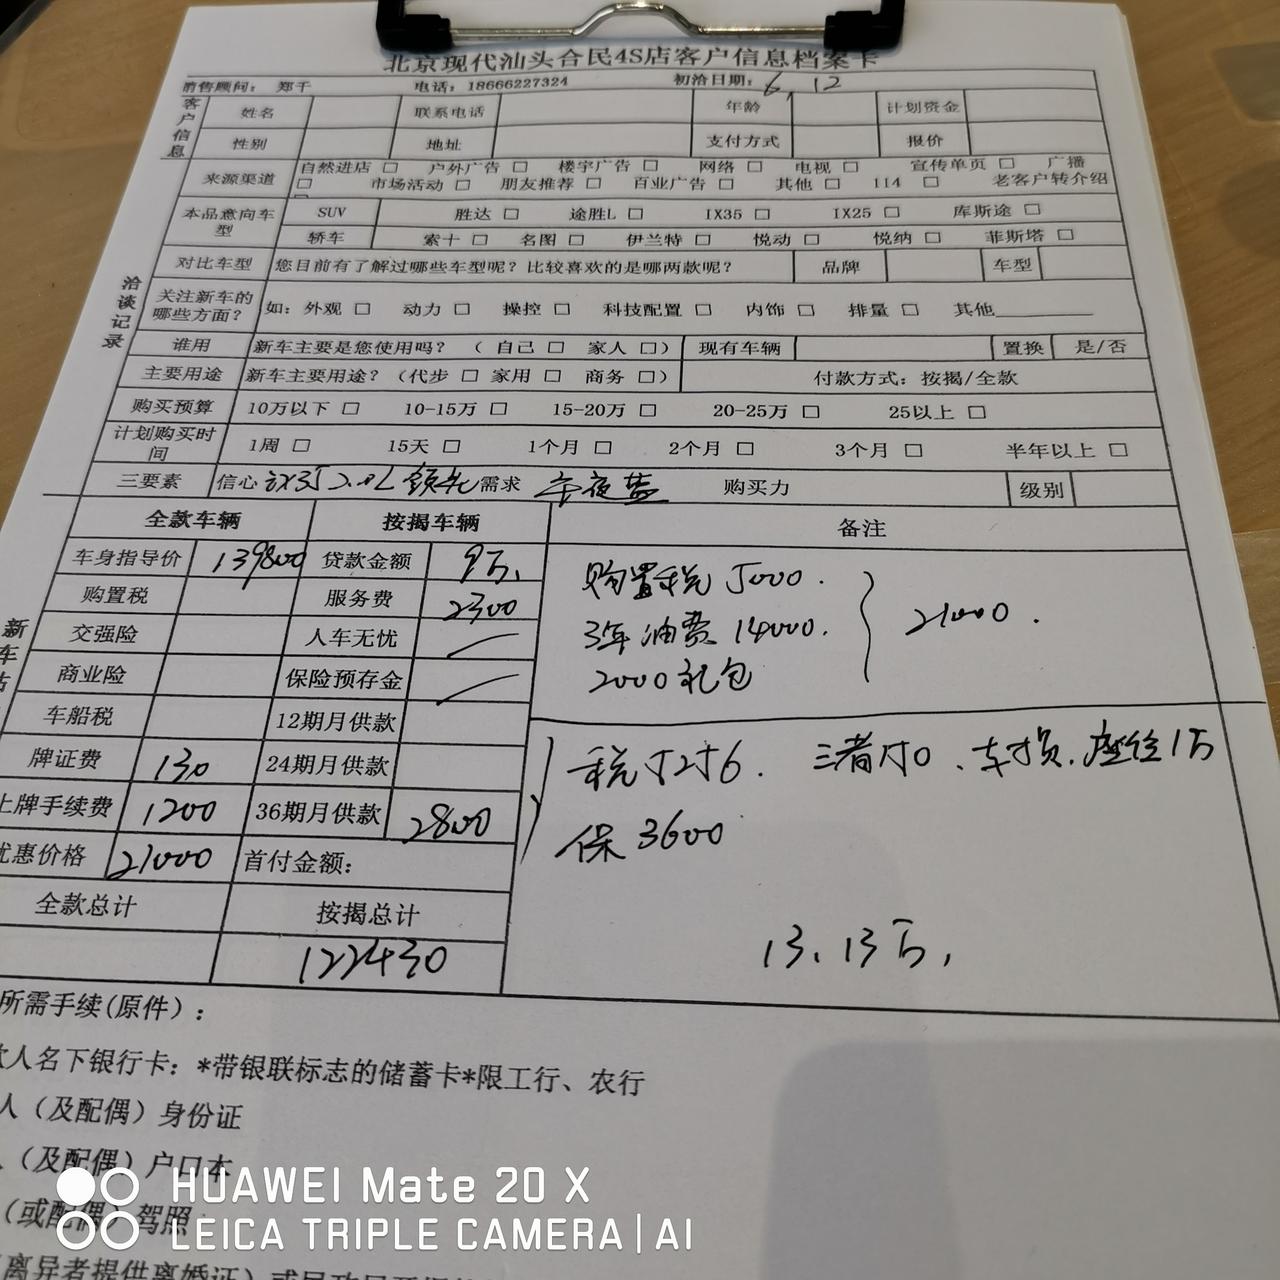 北京现代汕头合民4S店客户信息档案卡
销售顾问： 郑千 电话：18666227324 初洽日期：6, 12
客户信息
姓名 联系电话 年龄 计划资金
性别 地址 支付方式 报价
来源渠道 自然进店 □ 户外广告 □ 楼宇广告 □ 网络 □ 电视 □ 宣传单页 □ 广播
□ 市场活动 □ 朋友推荐 □ 百业广告 □ 其他 □ 114 □ 老客户转介绍
□
洽谈记录
本品意向车型 SUV 胜达 □ 途胜L □ IX35 □ IX25 □ 库斯途 □
轿车 索十 □ 名图 □ 伊兰特 □ 悦动 □ 悦纳 □ 菲斯塔 □
对比车型 您目前有了解过哪些车型呢？比较喜欢的是哪两款呢？ 品牌 车型
关注新车的哪些方面？ 如：外观 □ 动力 □ 操控 □ 科技配置 □ 内饰 □ 排量 □ 其他________
谁用 新车主要是您使用吗？（ 自己 □ 家人 □） 现有车辆 置换 是/否
主要用途 新车主要用途？（代步 □ 家用 □ 商务 □） 付款方式：按揭/全款
购买预算 10万以下 □ 10-15万 □ 15-20万 □ 20-25万 □ 25以上 □
计划购买时间 1周 □ 15天 □ 1个月 □ 2个月 □ 3个月 □ 半年以上 □
三要素 信心 ix35 2.0L 领先 需求 午夜蓝 购买力 级别
全款车辆 按揭车辆 备注
新车
车身指导价 139800 贷款金额 9万.
购置税 服务费 2300
交强险 人车无忧
商业险 保险预存金
车船税 12期月供款
牌证费 130 24期月供款
上牌手续费 1200 36期月供款 2800
优惠价格 21000 首付金额：
全款总计 按揭总计
122430
购置税 5000.
3年油费 14000. } 21000.
2000礼包
保 3600
13.13万.
所需手续(原件)：
人名下银行卡：*带银联标志的储蓄卡*限工行、农行
人（及配偶）身份证
（及配偶）户口本
（或配偶）驾照
离异者提供离婚证）或
HUAWEI Mate 20 X
LEICA TRIPLE CAMERA | AI